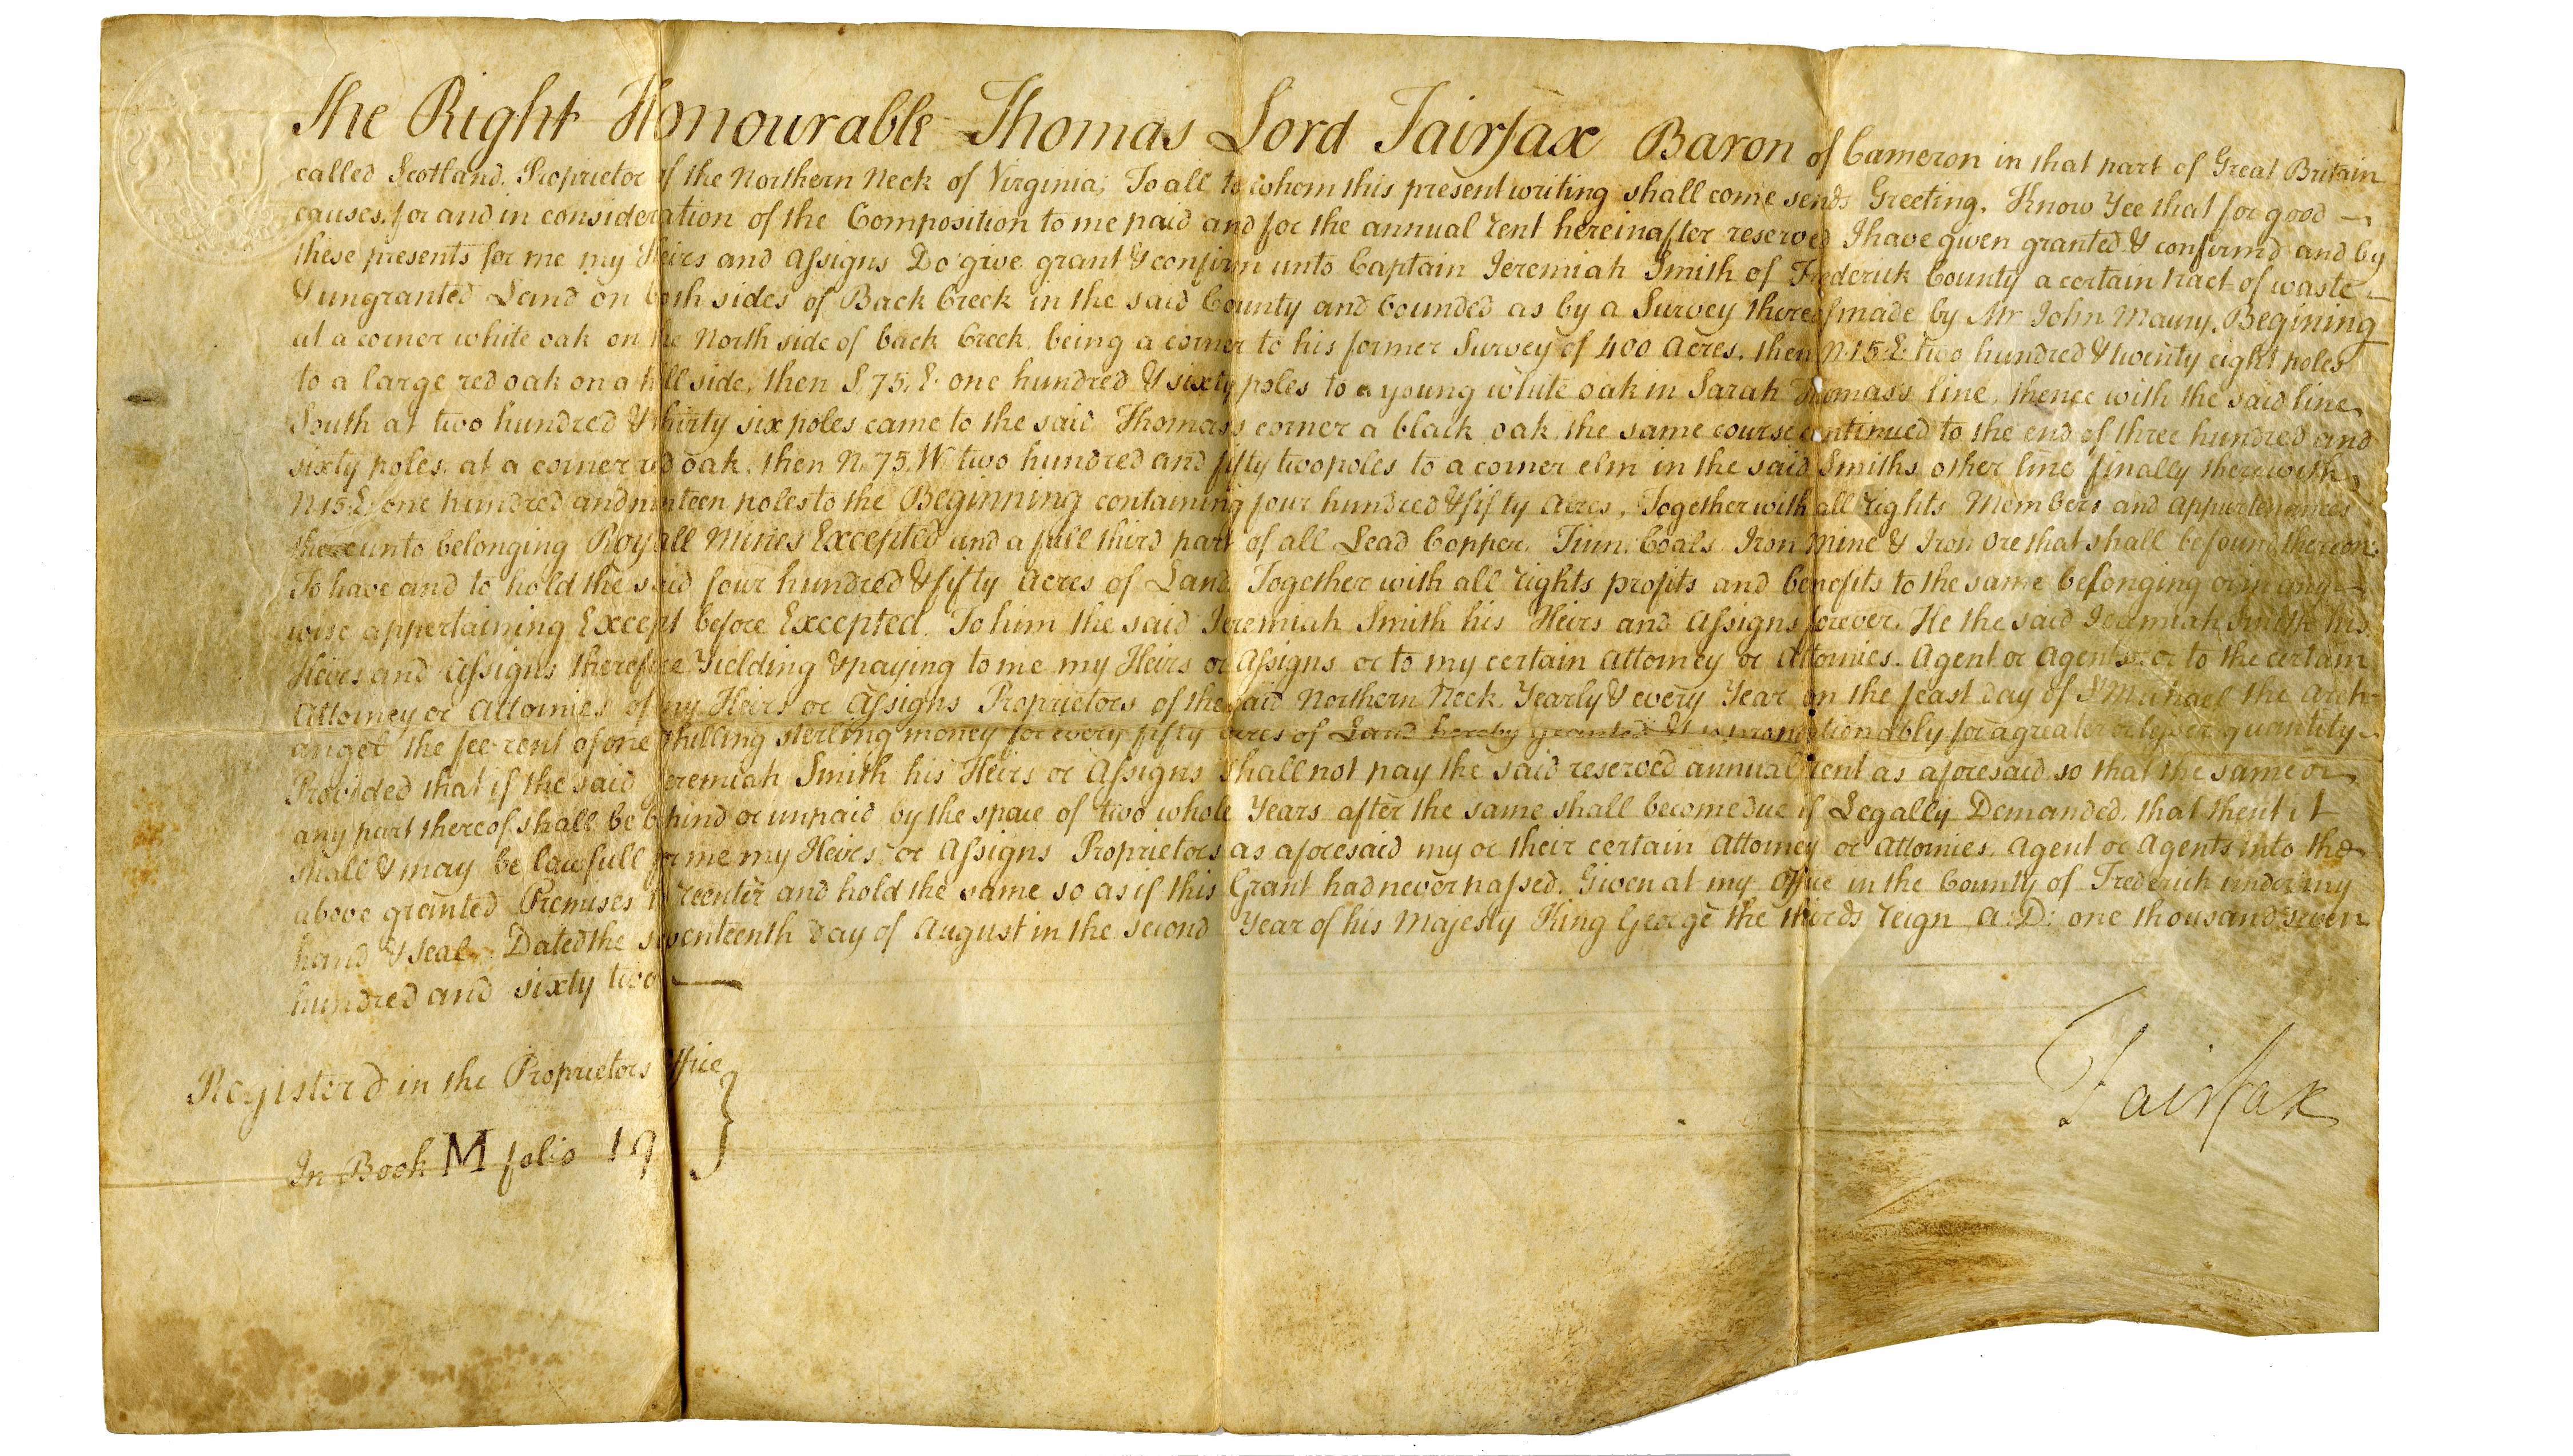 The Right Honourable Thomas Lord Fairfax Baron of Cameron in that part of Great Britain
called Scotland, Proprietor of the Northern Neck of Virginia; To all to whom this present writing shall come sends Greeting. Know Yee that for good —
causes, for and in consideration of the Composition to me paid and for the annual rent hereinafter reserved I have given granted & confirmd and by
these presents for me my Heirs and Assigns Do give grant & confirm unto Captain Jeremiah Smith of Frederick County a certain tract of waste —
& ungranted Land on both sides of Back Creek in the said County and bounded as by a Survey thereof made by Mr John Mauny, Begining
at a corner white oak on the North side of back Creek, being a corner to his former Survey of 400 Acres, then N. 15. E. two hundred & twenty eight poles
to a large red oak on a hill side, then S. 75. E. one hundred & sixty poles to a young white oak in Sarah Thomass line, thence with the said line
South at two hundred & thirty six poles came to the said Thomass corner a black oak, the same course continued to the end of three hundred and
sixty poles, at a corner red oak, then N. 75. W. two hundred and fifty two poles to a corner elm in the said Smiths other line finally therewith
N. 15. E. one hundred and ninteen poles to the Beginning containing four hundred & fifty Acres, Together with all rights Members and Appurtenances
thereunto belonging Royall Mines Excepted and a full third part of all Lead Copper, Tinn, Coals, Iron Mine & Iron Ore that shall be found thereon.
To have and to hold the said four hundred & fifty Acres of Land, Together with all rights profits and benefits to the same belonging or in any —
wise appertaining Except before Excepted. To him the said Jeremiah Smith his Heirs and Assigns forever. He the said Jeremiah Smith his
Heires and Assigns therefore Yielding & paying to me my Heirs or Assigns or to my certain Attorney or Attornies. Agent or Agents or to the certain
Attorney or Attornies of my Heirs or Assigns Proprietors of the said Northern Neck, Yearly & every Year on the feast day of St Michael the Arch-
angel the fee rent of one shilling sterling money for every fifty acres of Land hereby granted & so proportionably for a greater or lesser quantity
Provided that if the said Jeremiah Smith his Heirs or Assigns shall not pay the said reserved annual rent as aforesaid, so that the same or
any part thereof shall be behind or unpaid by the space of two whole Years after the same shall become due if Legally Demanded, that then it
shall & may be lawfull for me my Heirs or Assigns Proprietors as aforesaid my or their certain Attorney or Attornies, Agent or Agents into the
above granted Premises to reenter and hold the same so as if this Grant had never passed. Given at my Office in the County of Frederick under my
hand & seal. Dated the seventeenth day of August in the second Year of his Majesty King George the thirds reign A: D: one thousand seven
hundred and sixty two —
Fairfax
Register'd in the Proprietors Office
In Book M folio 19